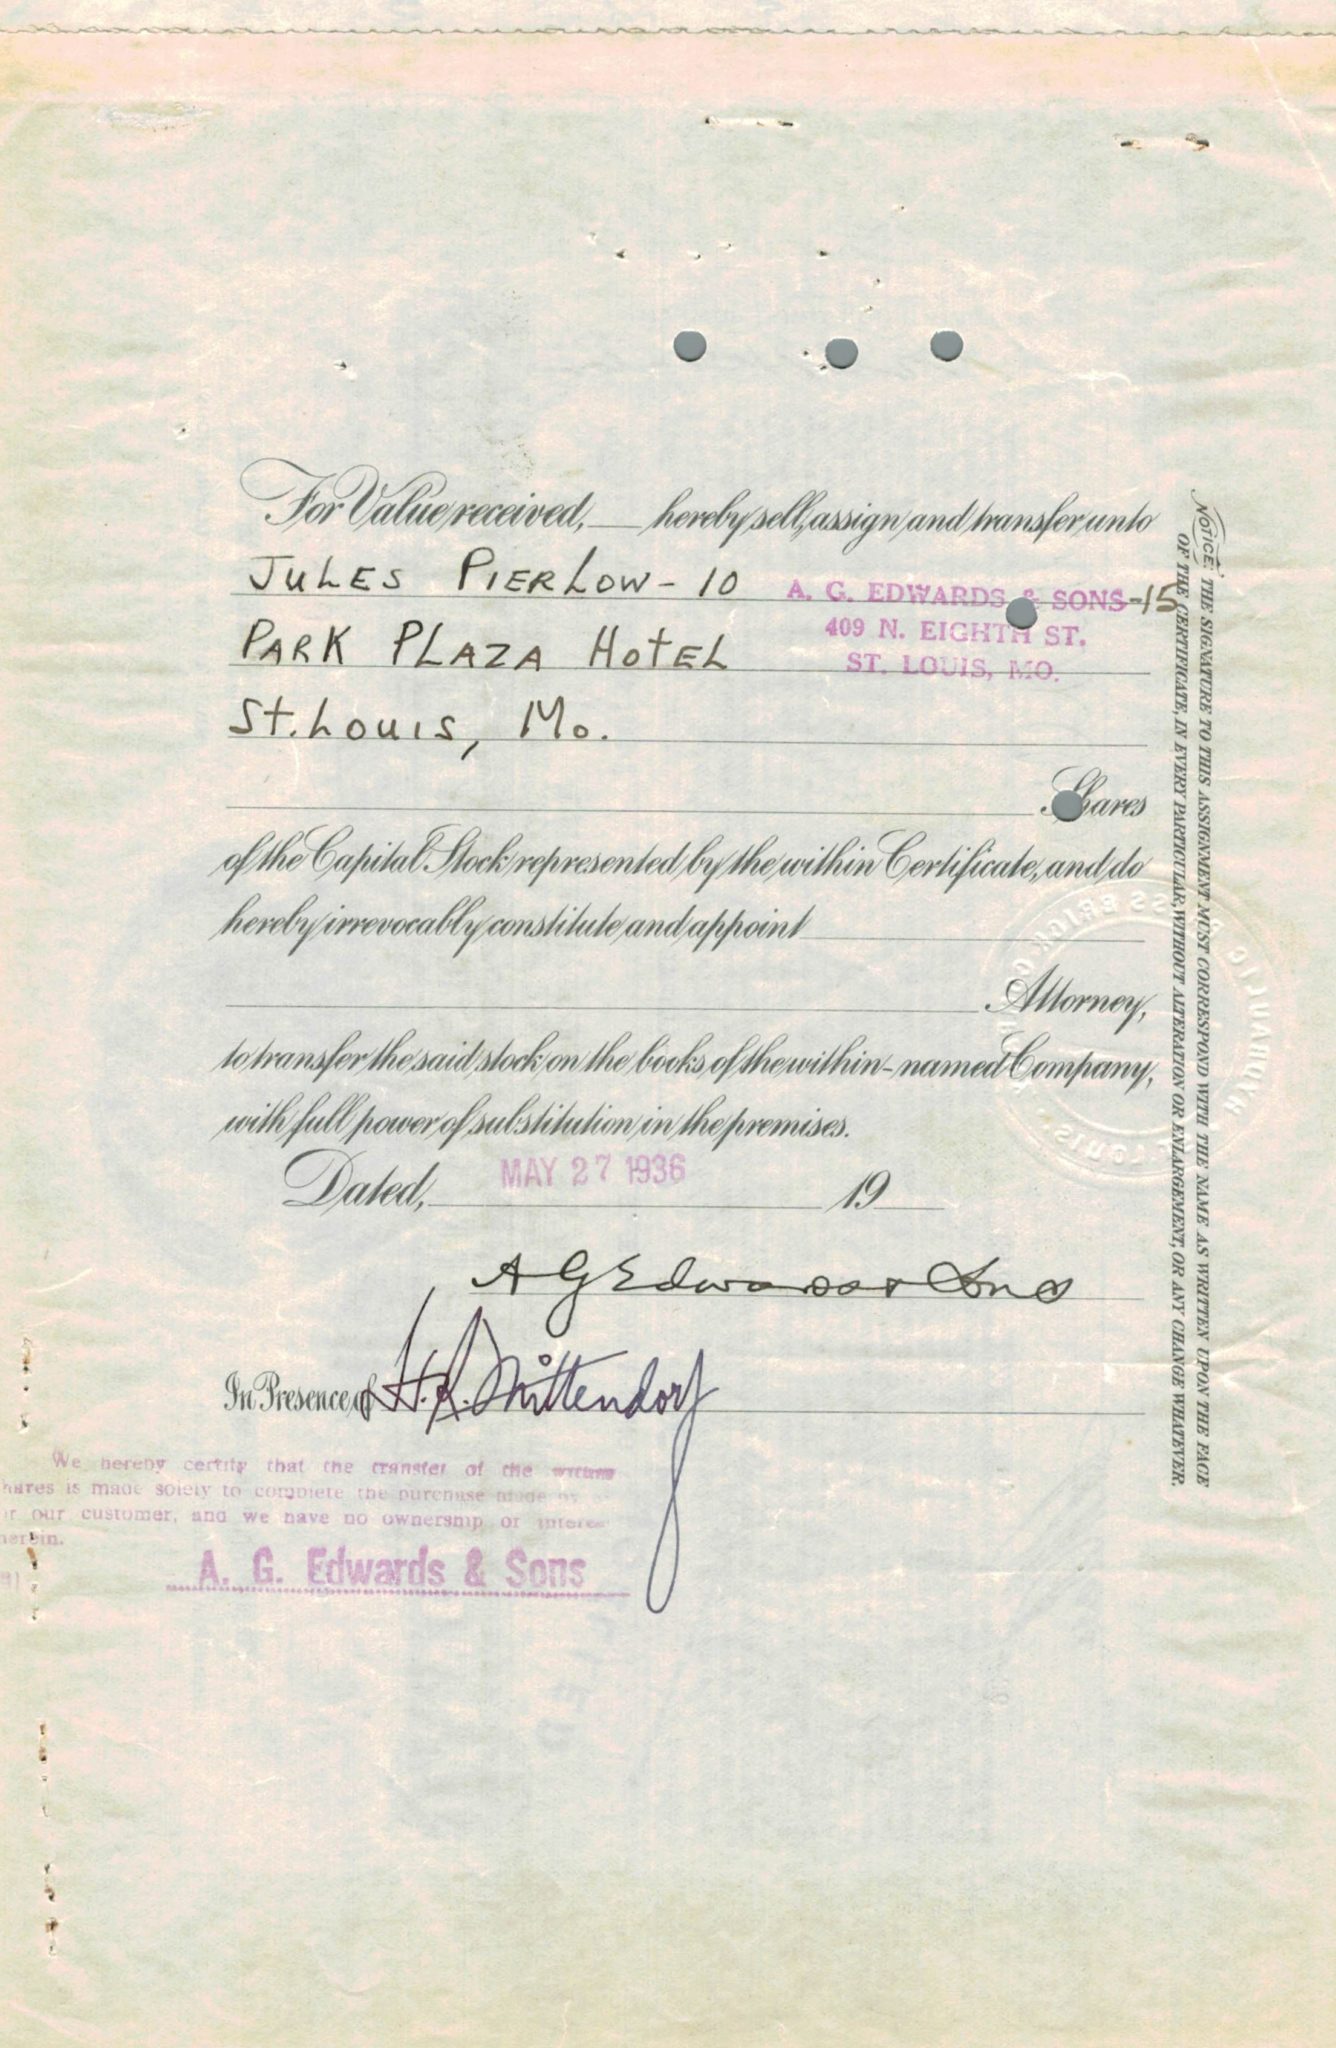 For Value received, ___ hereby sell, assign and transfer unto
JULES PIERLOW - 10 A. G. EDWARDS & SONS -15
PARK PLAZA HOTEL 409 N. EIGHTH ST.
ST. LOUIS, MO.
St. Louis, Mo.
Shares
of the Capital Stock represented by the within Certificate, and do
hereby irrevocably constitute and appoint
Attorney,
to transfer the said stock on the books of the within-named Company,
with full power of substitution in the premises.
Dated, MAY 27 1936 19
A G Edwards & Sons
In Presence of H. R. Mittendorf
We hereby certify that the transfer of the within
hares is made solely to complete the purchase made by
or our customer, and we have no ownership or interes
herein.
A. G. Edwards & Sons
NOTICE: THE SIGNATURE TO THIS ASSIGNMENT MUST CORRESPOND WITH THE NAME AS WRITTEN UPON THE FACE
OF THE CERTIFICATE, IN EVERY PARTICULAR, WITHOUT ALTERATION OR ENLARGEMENT, OR ANY CHANGE WHATEVER.
HYDRAULIC PRESS BRICK CO
ST. LOUIS